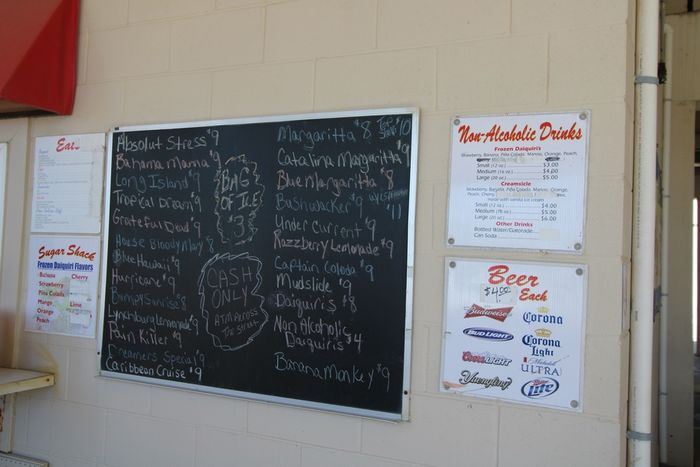 Eat..
Sugar Shack
Frozen Daiquiri Flavors
Banana
Cherry
Strawberry
Piña Colada
Mango
Lime
Orange
Peach
Absolut Stress $9
Bahama Mama $9
Long Island $9
Tropical Dream $9
Grateful Dead $9
House Bloody Mary $8
Blue Hawaii $9
Hurricane $9
Bumpy Sunrise $8
Lynchburg Lemonade $9
Pain Killer $9
Creamers Special $9
Caribbean Cruise $9
BAG
OF ICE
$3
CASH
ONLY
ATM ACROSS
The Street
Margaritta $8
$10
Catalina Margaritta $9
Blue Margaritta $8
Bushwacker $9
$11
Under Current $9
Razzberry Lemonade $9
Captain Colada $9
Mudslide $9
Daiquiris $8
Non Alcoholic
Daiquiris $4
Banana Monkey $9
Non-Alcoholic Drinks
Frozen Daiquiri's
Strawberry, Banana, Piña Colada, Mango, Orange, Peach,
Small (12 oz.) $3.00
Medium (16 oz.) $4.00
Large (20 oz.) $5.00
Creamsicle
Strawberry, Banana, Piña Colada, Mango, Orange,
Peach, Cherry
made with vanilla ice cream
Small (12 oz.) $4.00
Medium (16 oz.) $5.00
Large (20 oz.) $6.00
Other Drinks
Bottled Water/Gatorade
Can Soda
Beer
$4.00 Each
Budweiser
Corona
BUD LIGHT
Corona
Light
Coors LIGHT
Michelob
ULTRA
Yuengling
Miller
Lite